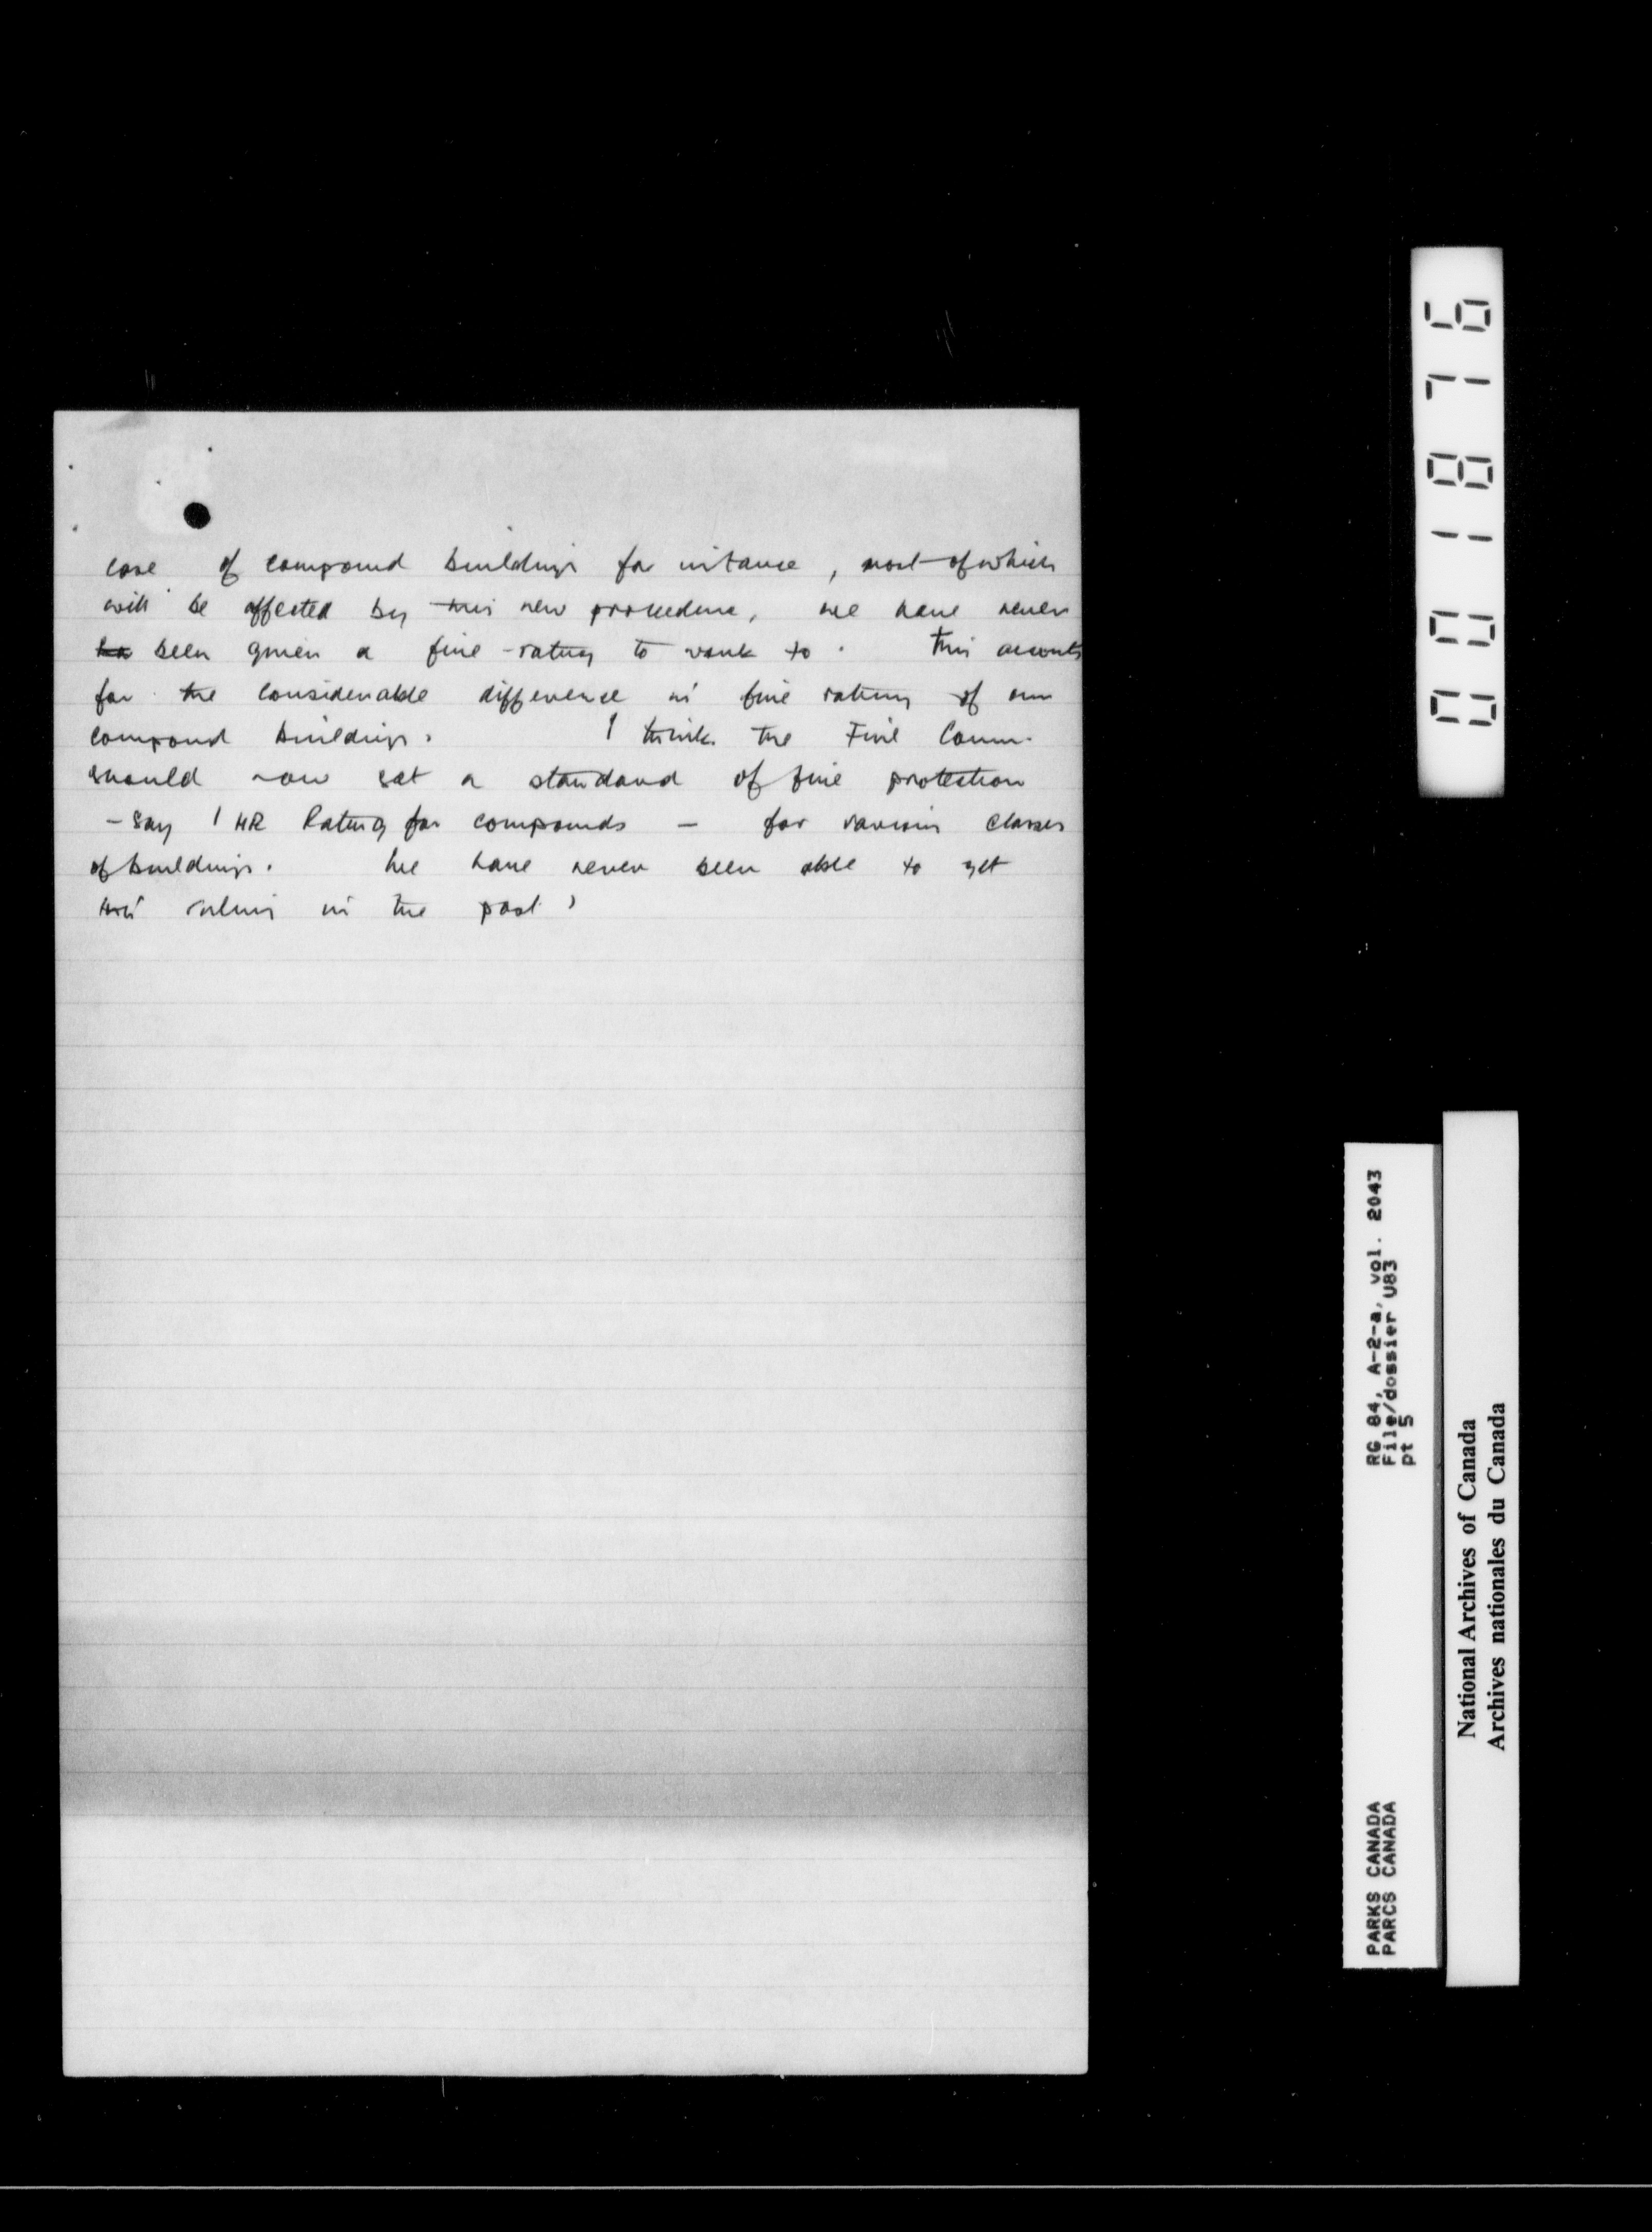 case of compound buildings for instance, most of which
will be affected by this new procedure, we have never
been given a fire-rating to work to. This accounts
for the considerable difference in fire rating of our
compound buildings. I think the Fire Comm.
should now set a standard of fire protection
- say 1 HR Rating for compounds - for various classes
of buildings. We have never been able to get
this in the past
001876
RG 84, A-2-a, vol. 2043
File/dossier U83
pt 5
PARKS CANADA
PARCS CANADA
National Archives of Canada
Archives nationales du Canada